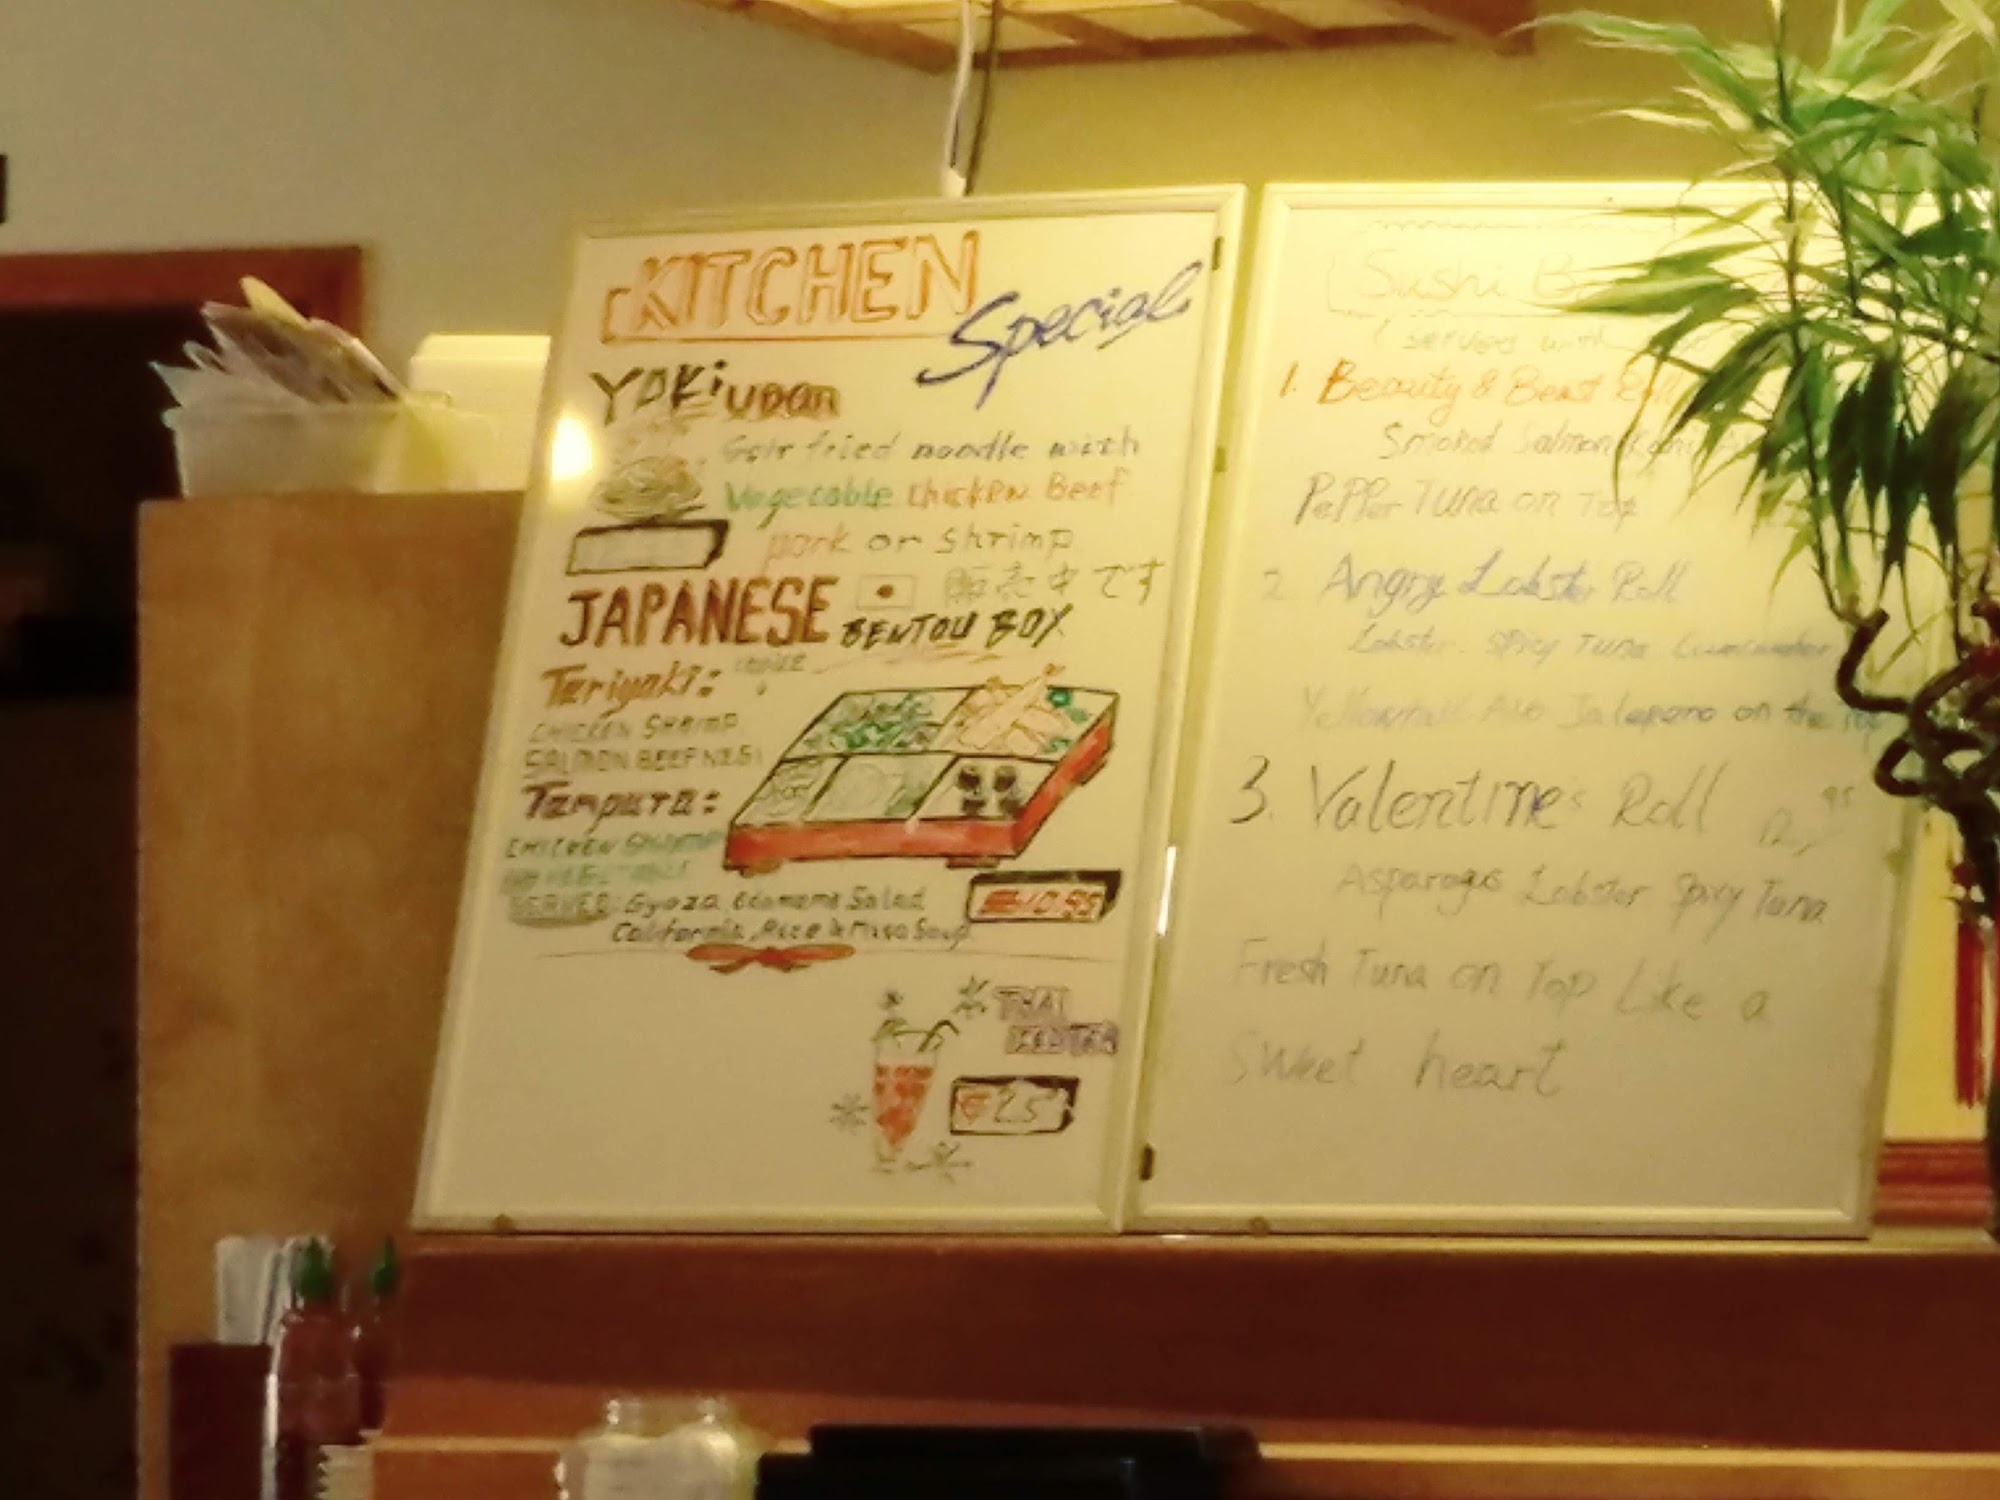 KITCHEN
Special
YAKI UDON
Stir fried noodle with
Vegetable chicken Beef
pork or shrimp
JAPANESE 販売中です
BENTOU BOX
Teriyaki: choice
CHICKEN SHRIMP
SALMON BEEF NEGI
Tempura:
CHICKEN SHRIMP
VEGETABLE
SERVED: Gyoza Edamame Salad
California, Rice & Miso Soup
10.95
THAI
25
Sushi
serves with
1. Beauty & Beast Roll
Smoked Salmon
Pepper Tuna on Top
2 Angry Lobster Roll
Lobster Spicy Tuna Cucumber
Yellowtail Avo Jalapeno on the top
3. Valentine's Roll 12.95
Asparagus Lobster Spicy Tuna
Fresh Tuna on Top Like a
Sweet heart